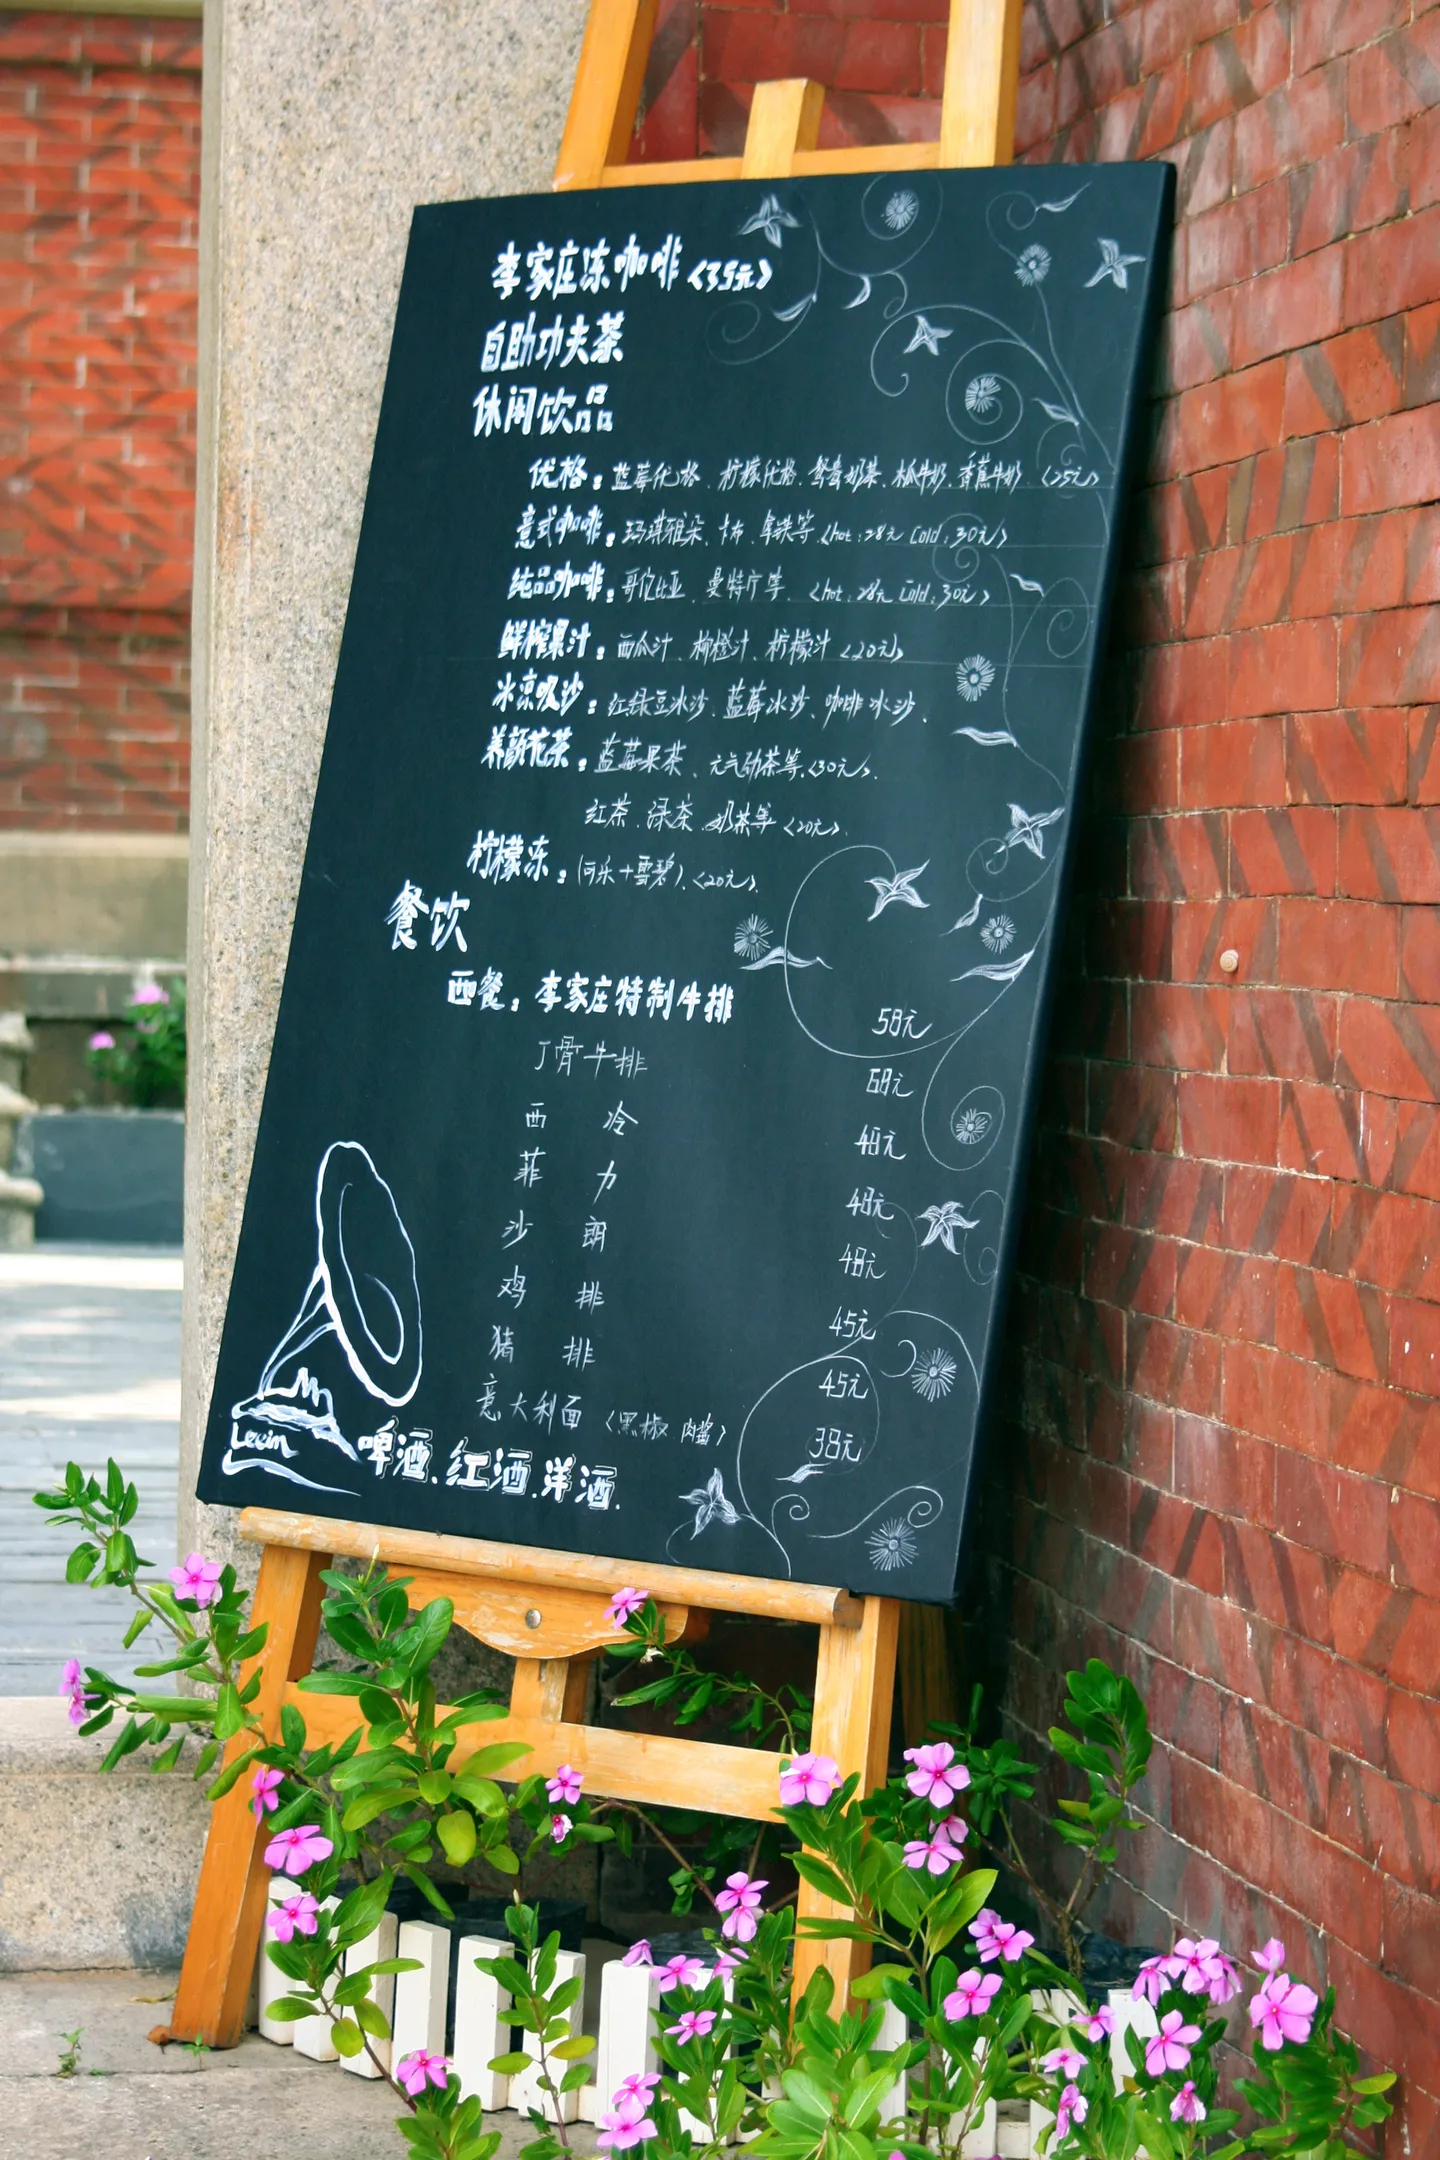 李家庄冻咖啡〈35元〉
自助功夫茶
休闲饮品
优格：蓝莓优格、柠檬优格、鸳鸯奶茶、木瓜牛奶、香蕉牛奶〈25元〉
意式咖啡：玛琪雅朵、卡布、拿铁等〈hot:28元 Cold:30元〉
纯品咖啡：哥伦比亚、曼特宁等、〈hot:28元 Cold:30元〉
鲜榨果汁：西瓜汁、柳橙汁、柠檬汁〈20元〉
冰凉吸沙：红绿豆冰沙、蓝莓冰沙、咖啡冰沙、
养颜花茶：蓝莓果茶、元气动茶等〈30元〉.
红茶、绿茶、奶茶等〈20元〉.
柠檬冻：(可乐+雪碧)、〈20元〉.
餐饮
西餐：李家庄特制牛排 58元
丁骨牛排 68元
西 冷 48元
菲 力 48元
沙 朗 48元
鸡 排 45元
猪 排 45元
意大利面〈黑椒 肉酱〉 38元
Leein
啤酒、红酒、洋酒.